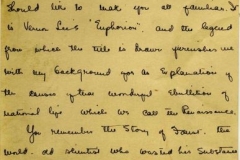 should like to make you all familiar. It
is Vernon Lee's "Euphorion". and the legend
from which the title is drawn furnishes me
with my background for an Explanation of
the causes of that wonderful ebullition of
national life which we call the Renaissance.
You remember the Story of Faust. the
world-old scientist who wasted his Substance